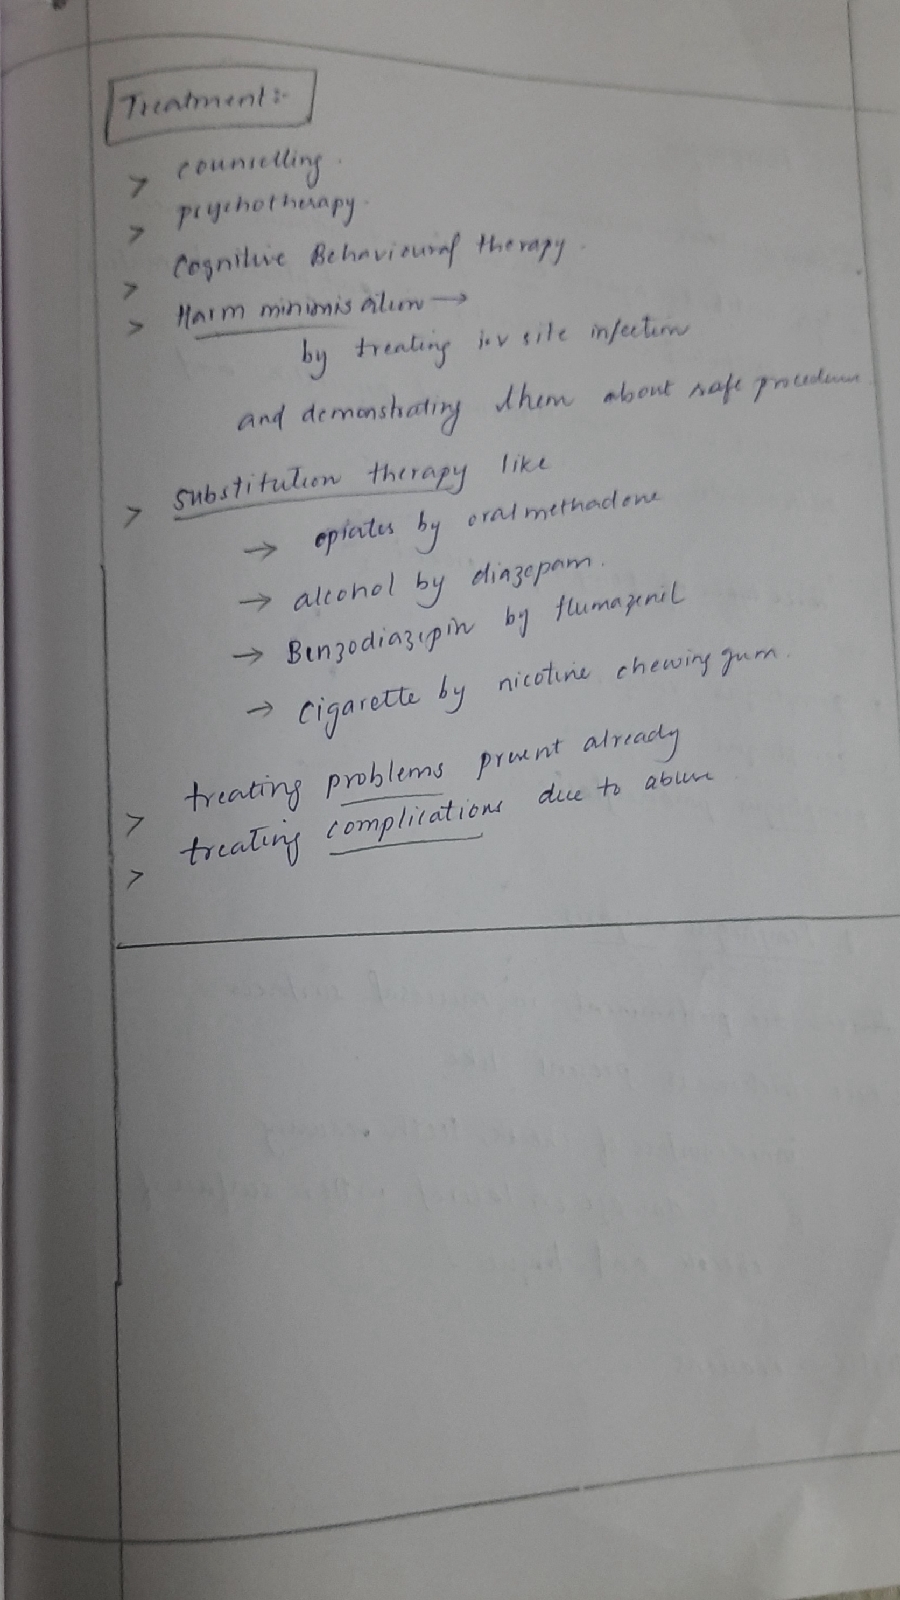 Treatment:-
> counselling.
> psychotherapy.
> Cognitive Behavioural therapy.
> Harm minimisation →
by treating i.v site infection
and demonstrating them about safe procedure.
> Substitution therapy like
→ opiates by oral methadone
→ alcohol by diazepam.
→ Benzodiazepin by flumazenil
→ Cigarette by nicotine chewing gum.
> treating problems present already
> treating complications due to abuse